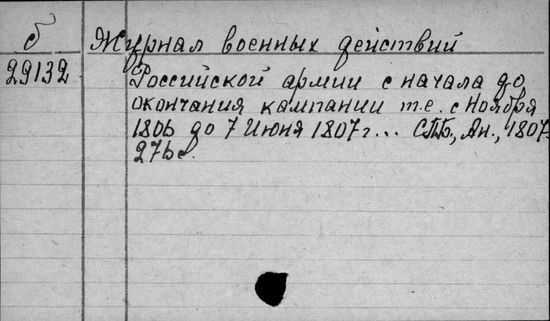 б Журнал военных действий
29132 Российской армии с начала до
окончания кампании т.е. с Ноября
1806 до 7 Июня 1807 г... СПБ., Ан., 1807.
276 с.